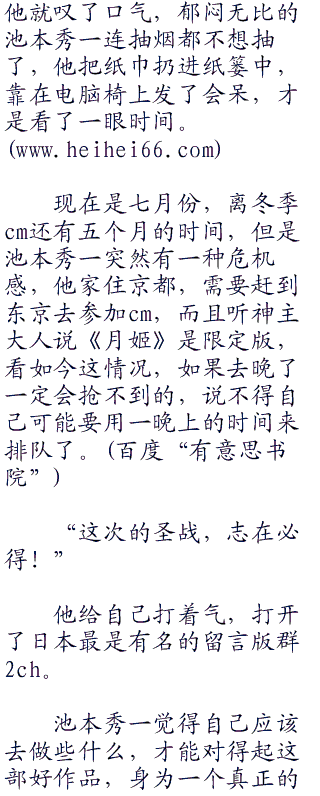 他就叹了口气，郁闷无比的
池本秀一连抽烟都不想抽
了，他把纸巾扔进纸篓中，
靠在电脑椅上发了会呆，才
是看了一眼时间。
(www.heihei66.com)
现在是七月份，离冬季
cm还有五个月的时间，但是
池本秀一突然有一种危机
感，他家住京都，需要赶到
东京去参加cm，而且听神主
大人说《月姬》是限定版，
看如今这情况，如果去晚了
一定会抢不到的，说不得自
己可能要用一晚上的时间来
排队了。(百度“有意思书
院”)
“这次的圣战，志在必
得！”
他给自己打着气，打开
了日本最是有名的留言版群
2ch。
池本秀一觉得自己应该
去做些什么，才能对得起这
部好作品，身为一个真正的